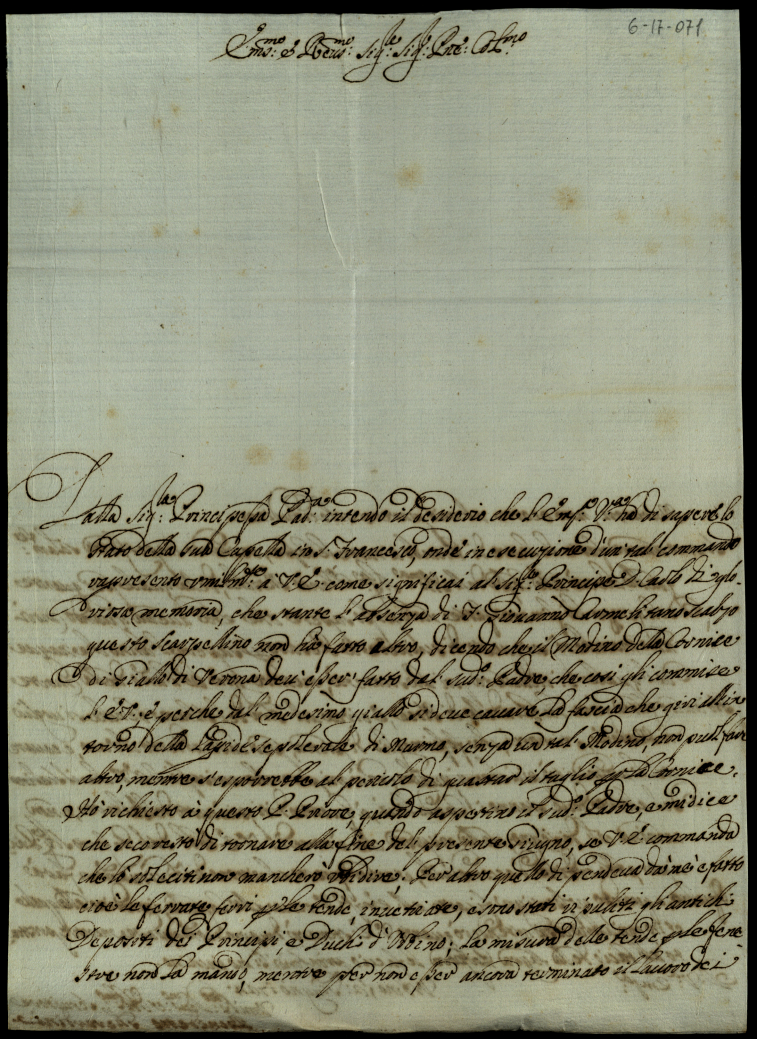 6-17-071
Em̃o: e Reumo: Sigre: Sigr: Pne: Colmo
Dalla Sigra: Principessa Padna intendo il desiderio che l'Emza: Va: ha di sapere lo
stato della sua Capella in S. Francesco, onde in esecuzione d'un tal commando
rappresento umilmte: a V: E: come significai al Sigr: Principe D. Carlo di glo„
riosa memoria, che stante l'absenza di F. Giovanni Carmelitano scalzo
questo Scarpellino non ha fatto altro, dicendo che il Modino della Cornice
di Giallo di Verona dev'esser fatto dal sudo: Padre, che così gli commise
l'E: V:, e perche dal medesimo giallo si deve cavare la fascia che giri all'in
torno della Lapide sepolcrale di Marmo, senza un tal Modino, non può far
altro, mentre s'esporrebbe al pericolo di guastar il taglio per la Cornice.
Hò richiesto à questo P. Priore, quando aspettino il sudo: Padre, e mi dice
che sec'oresto di tornare alla fine del presente Giugno, se V: E: commanda
che lo soleciti non mancherò ubidire. Per altro quello di pendeva da me è fatto
cioè le ferrate, ferri per le tende, invetriate, e sono stati ri puliti gli antichi
Depositi dei Principi, e Duchi d'Urbino; La misura delle tende per le fene
stre non la mando, mentre per non esser ancora terminato il lavoro dei